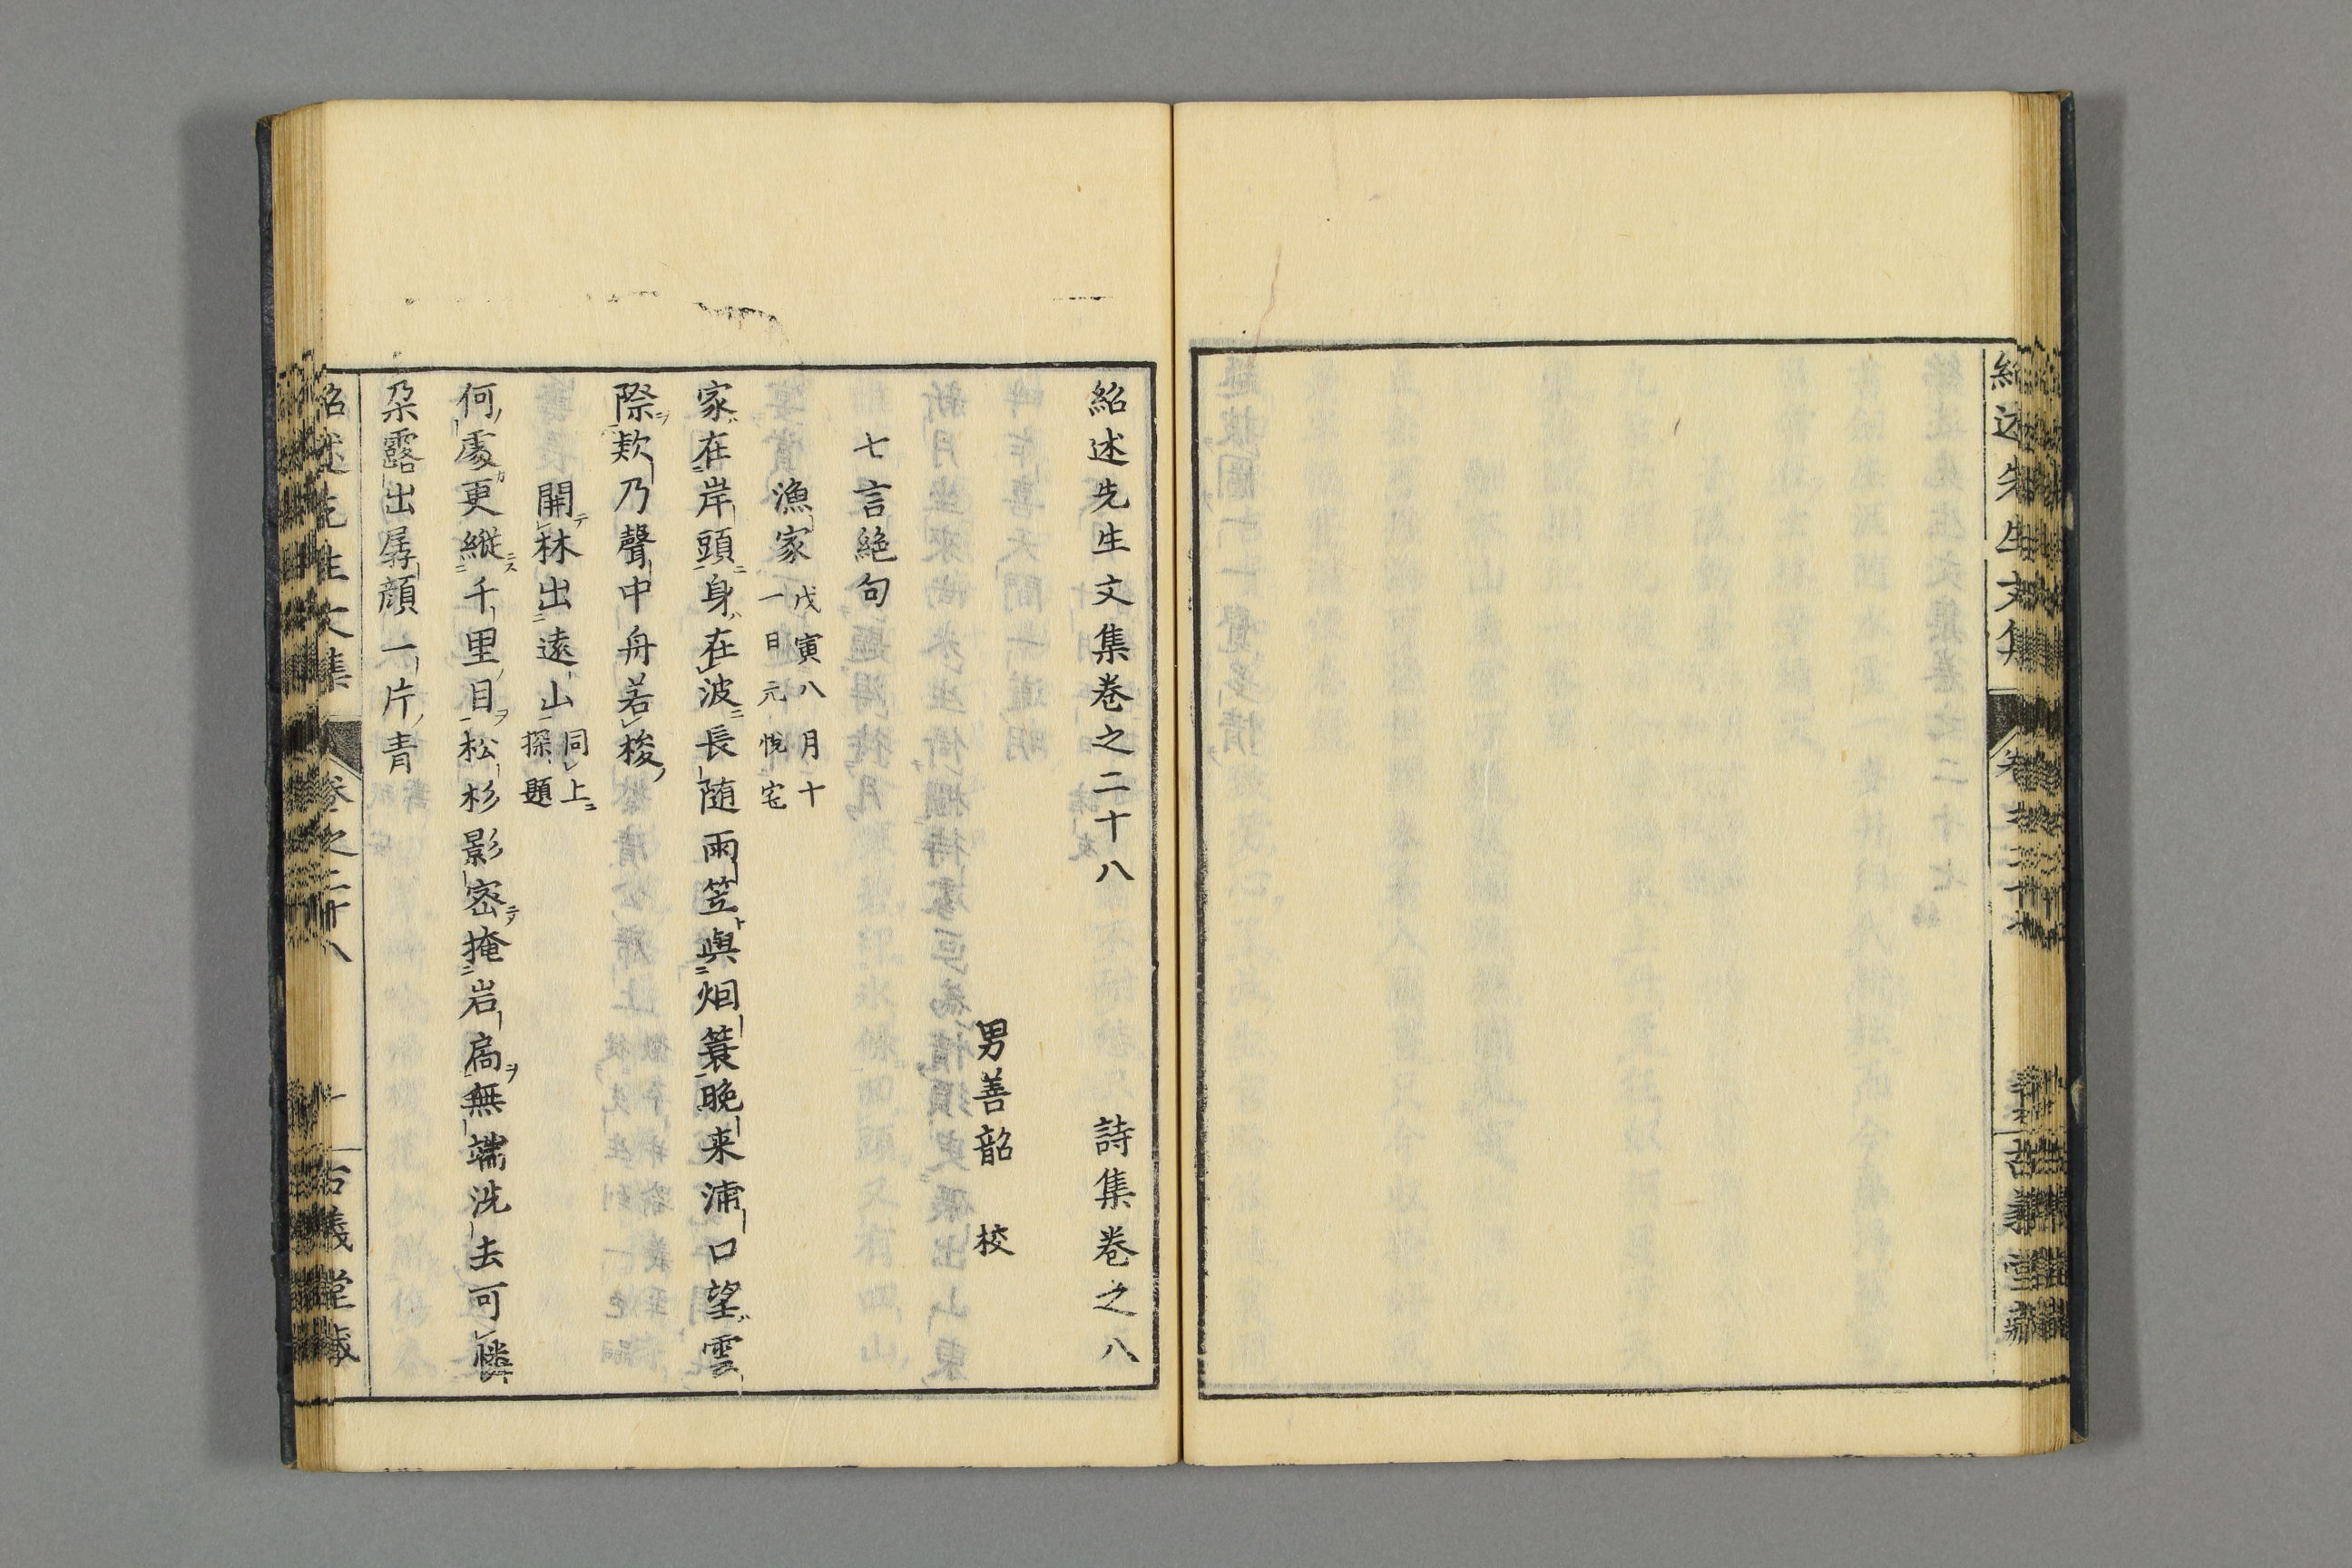 紹述先生文集卷之二十八 詩集卷之八
男善韶 校
七言絶句
漁家 戊寅八月十一日元悅宅
家在岸頭身在波長隨雨笠與烟簑晚来浦口望雲
際欵乃聲中舟若梭
開林出遠山 同上探題
何處更縱千里目松杉影密掩岩扃無端洗去可
朶露出孱顔一片青
紹述先生文集 卷之二十八 一 古義堂藏